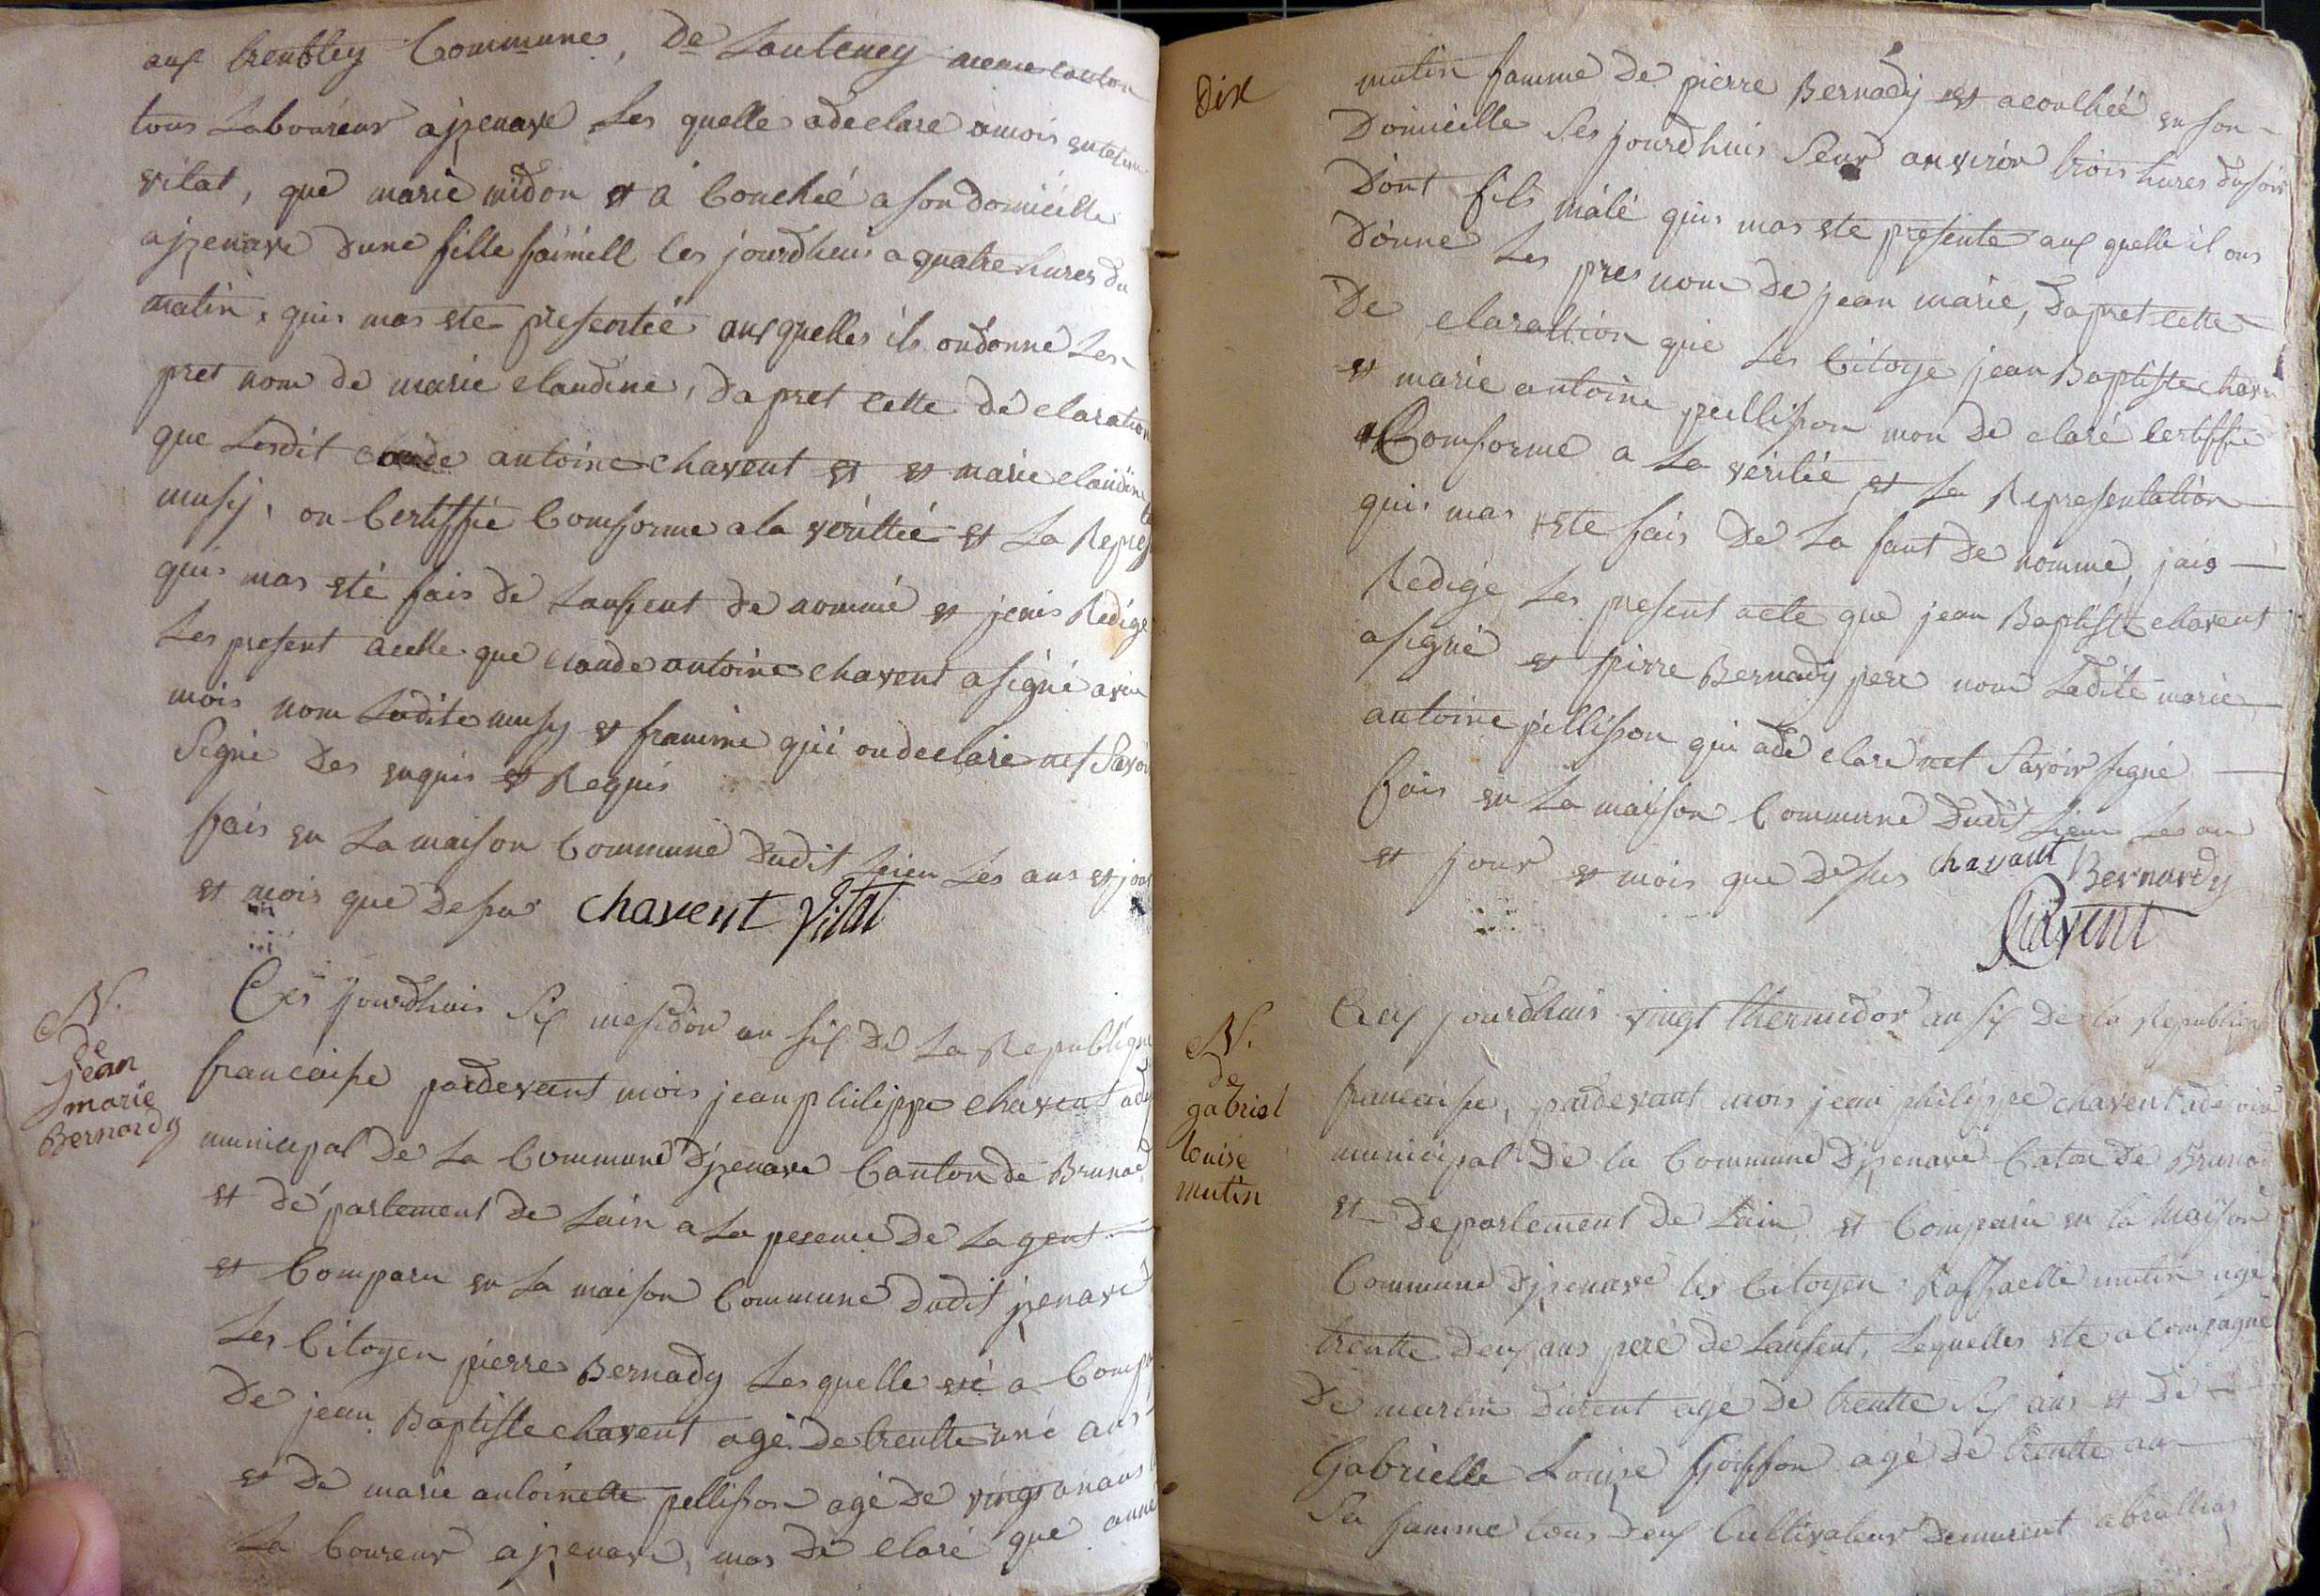 aux trenbley Commune, De Lanteney meme canton
tous Laboureur a jzenave Les quelle adeclare amois
vitat, que marie midon et a Couchée a son domicille
a jzenave dune fille faimell les jourdhuis a quatre hures du
matin, quis mas ete presentée aux quelles ils on donné Les
pret nom de marie claudine, Dapret cette dé claration
que Lesdit claude antoine chavent et et marie claudine
musy, on Certiffié Comforme a la vérittée et La Repres
quis mas eté fais de Lanfent de nommé et jeais Redige
Les present actte que claude antoine chavent a signé avec
mois nom Ladite musy et framine qui on declaré net Savoir
Signé Des enquis et Requis
fais en La maison Commune dudit Leieu Les ans et jour
et mois que Desus chavent Vitat
N.
de
jean
marie
Bernardy
Ces jourdhuis Six mesidor an six De La Republique
francaise pardevant mois jean philippe chavent adj
municipal De La Commune Djzenave Canton de Brunod
et dé partement De Lain a La pesence De Lagent
et Comparu en La maison Commune dudit jzenave
Les Citoyen pierre Bernady Lesquelle eté a Comp
De jean Baptiste chavent agé de trentte une ans
et De marie antoinette pellisson agé De vingt anans
La Coureur a jzenave, mas De claré que anne
Dix
mutin famme De pierre Bernady et acouchée en son
Domicille Ses jourdhuis Seur anviron trois hures du soir
Dont fils málé quis mas ete presente aux quelle il ons
Donne Les pres nom De jean marie, Dapret cette
De claralttion que Les Citoye jean Baptiste chaven
et marie antoine pellisson mon De claré Certiffié
Comforme a La veritée et La Representation
quis mas ete fais De La fant De nomme, jais
Redigé Les present acte que jean Baptiste chavent
asigné et pirre Bernady pere nom Ladite marie
antoine pillisson qui adé claré net Savoir signé
fais en La maison Commune Dudit Lieu Les an
et jour et mois que Desus chavant Bernardy
Chavent
N.
de
gabriel
louise
mutin
Ceux jourdhuis vingt thermidor an six De la Republique
francaise, pardevant mois jean philippe chavent adjoin
municipal De la Commune Djzenave Caton De Brunod
et Departement De Lain, et Comparu en la Maison
Commune Djzenave les Citoyen Raffaelle mutin agé
trentte deux ans peré de Lanfent, Lequelles ete a Compagné
De martin Durent agé De trentte Six ans et De
Gabrielle Louise Goiffon agé de trentte an
Sa famme tous deux Culltivateur Demurent